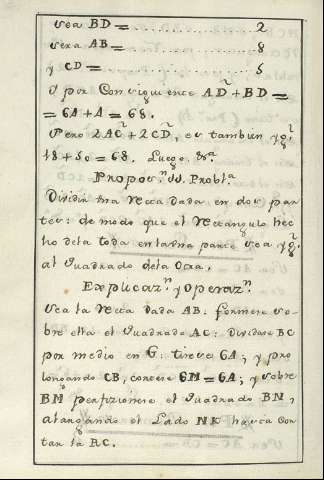 sea BD = .................... 2
sera AB = .................... 8
y CD = .................... 5
Y por Consiguiente AD² + BD² =
= 64 + 4 = 68.
Pero 2AC² + 2CD², es tambien yg.ˡ
18 + 50 = 68. Luego. &.ª
Propos.ⁿ 11. Probl.ª
Dividir una recta dada en dos par
tes: de modo que el rectangulo hec
ho dela toda en la una parte sea yg.ˡ
al Quadrado dela Otra.
Explicaz.ⁿ y Operaz.ⁿ
Sea la recta dada AB: formese so-
bre ella el Quadrado AC: Dividase BC
por medio en G: tirese GA; y pro
longando CB, cortese GM = GA; y sobre
BM perfizionese el Quadrado BN,
alargando el Lado NK hasta Cor-
tar la RC.